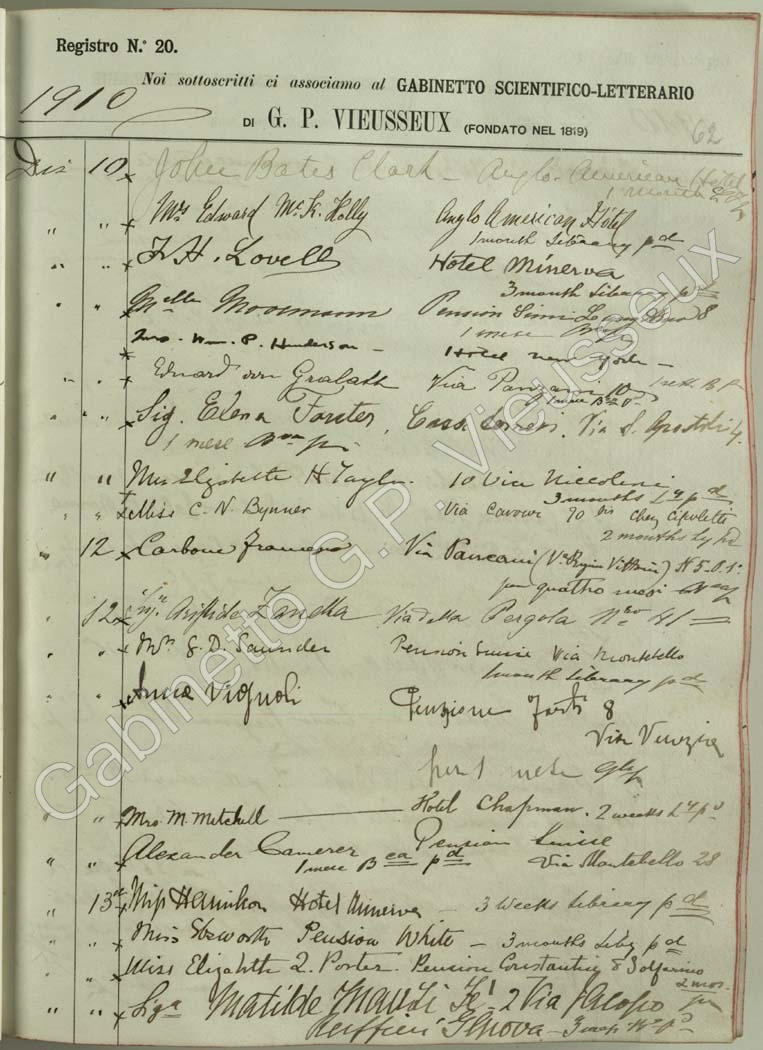 Registro N.° 20.
Noi sottoscritti ci associamo al GABINETTO SCIENTIFICO-LETTERARIO
1910
DI G. P. VIEUSSEUX (FONDATO NEL 1819)
62
10 John Bates Clark - Anglo-American Hotel
1 month
" " Mrs Edward McK. Holly Anglo American Hôtel
1 month Library pd
" " F. H. Lovell Hotel Minerva
3 month Library pd
" " Melle Moosmann Pension
1 mese
Mrs. Wm. P. Henderson - Hotel New York -
" " Eduard von Gralath Via Panzani 10
1 mese
" " Sig. Elena Forster, Casa Via S. Apostoli 4.
1 mese
" " Miss Elizabeth H Taylor 10 Via Niccolini
3 months Ly pd
" " Miss C. N. Bynner Via Cavour 90 bis chez Cipolletti
2 months Ly pd
" 12 Carbone Via Panzani
per quattro mesi
" 12 Aristide Zanella Via della Pergola No 41
" " Mrs G. D. Saunder Pension Suisse Via Montebello
1 month Library pd
" " Anna Vignoli 8
Via Venezia
per 1 mese
" " Mrs M. Mitchell Hotel Chapman. 2 weeks Ly pd
" " Alexander Camerer Pension Suisse
1 mese Bca pd Via Montebello 28
" 13 Miss Hamilton Hotel Minerva - 3 weeks Library pd
" " Miss Ebsworth Pension White - 3 months Liby pd
" " Miss Elizabeth L. Porter. Pension Constantin 8 Solferino
2 mos. pd
" " Siga Matilde 2 Via Jacopo
Ruffini Genova - 3
Gabinetto G.P. Vieusseux